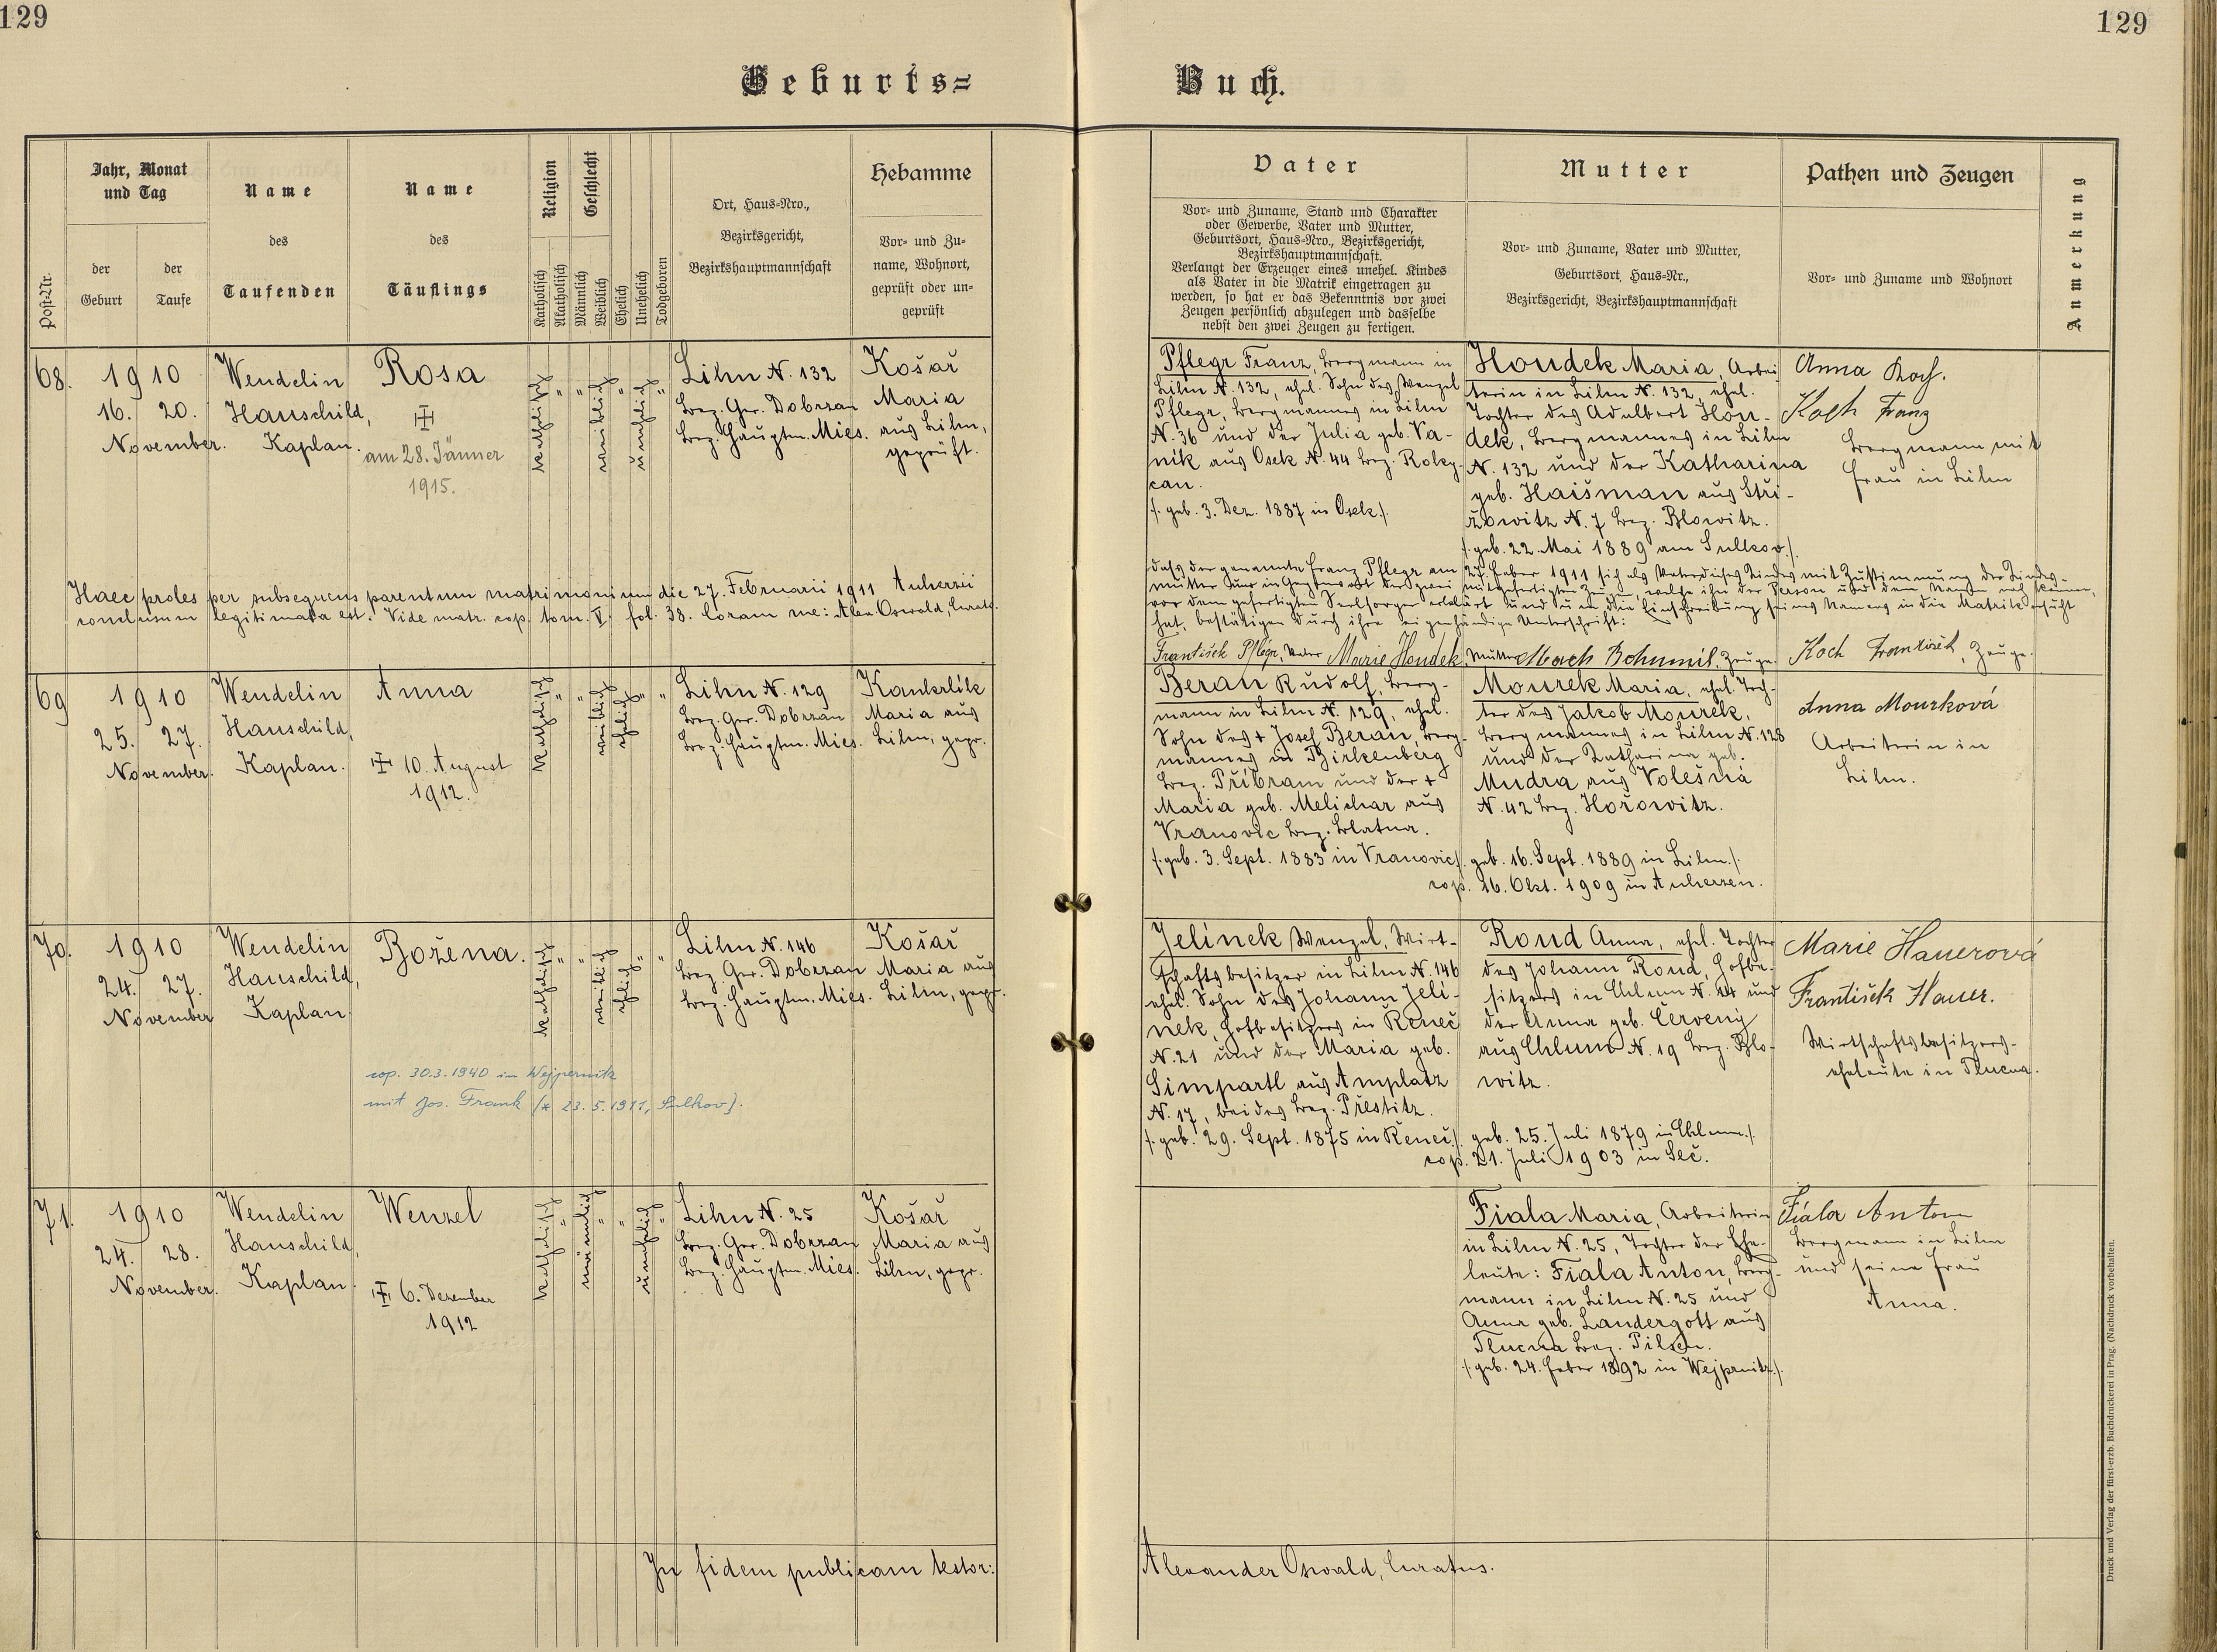 129
129
Geburts=
Buch.
Post-Nr.
Jahr, Monat
und Tag
der
Geburt
der
Taufe
Name
des
Taufenden
Name
des
Täuflings
Religion
Katholisch
Akatholisch
Geschlecht
Männlich
Weiblich
Ehelich
Unehelich
Todgeboren
Ort, Haus-Nro.,
Bezirksgericht,
Bezirkshauptmannschaft
Hebamme
Vor- und Zu-
name, Wohnort,
geprüft oder un-
geprüft
Vater
Vor- und Zuname, Stand und Charakter
oder Gewerbe, Vater und Mutter,
Geburtsort, Haus-Nro., Bezirksgericht,
Bezirkshauptmannschaft.
Verlangt der Erzeuger eines unehel. Kindes
als Vater in die Matrik eingetragen zu
werden, so hat er das Bekenntnis vor zwei
Zeugen persönlich abzulegen und dasselbe
nebst den zwei Zeugen zu fertigen.
Mutter
Vor- und Zuname, Vater und Mutter,
Geburtsort, Haus-Nr.,
Bezirksgericht, Bezirkshauptmannschaft
Pathen und Zeugen
Vor- und Zuname und Wohnort
Anmerkung
68.
1910
16. 20.
November.
Wendelin
Hauschild,
Kaplan.
Rosa
am 28. Jänner
1915.
katholisch
"
"
weiblich
"
unehelich
"
Lihn N. 132
Bez. Ger. Dobrzan
Bez. Hauptm. Mies.
Košař
Maria
aus Lihn,
geprüft.
Pflegr Franz, Bergmann in
Lihn N. 132, ehel. Sohn des Wenzel
Pflegr, Bergmannes in Lihn
N. 36 und der Julia geb. Va-
nik aus Osek N. 44 Bez. Roky-
can.
/: geb. 3. Dez. 1887 in Osek./.
Houdek Maria, Arbei
terin in Lihn N. 132, ehel.
Tochter des Adalbert Hou-
dek, Bergmannes in Lihn
N. 132 und der Katharina
geb. Haišman aus Stři-
žowitz N. 7 Bez. Blowitz.
/: geb. 22. Mai 1889 am Sulkov./.
Anna Koch.
Koch Franz
Bergmann mit
Frau in Lihn
Haec proles per subsequens parentum matrimonium die 27. Februarii 1911 Auherzii
conclusum legitimata est. Vide matr. cop. tom. V. fol. 38. Coram me: Alex Oswald, Curat.
dass der genannte Franz Pflegr am 27. Feber 1911 sich als Vater dieses Kindes mit Zustimmung der Kindes-
mutter und in Gegenwart der zwei mitgefertigten Zeugen, welche ihn der Person und dem Namen nach kennen,
vor dem gefertigten Seelsorger erklärt und um die Einschreibung seines Namens in die Matrik ersucht
hat, bestätigen durch ihre eigenhändige Unterschrift:
František Pflégr, Vater Marie Houdek, Mutter Mach Bohumil, Zeuge. Koch František, Zeuge.
69
1910
25. 27.
November.
Wendelin
Hauschild,
Kaplan.
Anna
10. August
1912.
katholisch
"
"
weiblich
ehelich
"
"
Lihn N. 129
Bez. Ger. Dobrzan
Bez. Hauptm. Mies.
Kankrlík
Maria aus
Lihn, gepr.
Beran Rudolf, Berg-
mann in Lihn N. 129, ehel.
Sohn des + Josef Beran, Berg-
mannes in Birkenberg
Bez. Příbram und der +
Maria geb. Melichar aus
Vranovic Bez. Blatna.
/: geb. 3. Sept. 1883 in Vranovic/.
Mourek Maria, ehel. Toch-
ter des Jakob Mourek,
Bergmannes in Lihn N. 128
und der Katharina geb.
Mudra aus Volešná
N. 42 Bez. Hořowitz.
geb. 16. Sept. 1889 in Lihn./.
cop. 16. Okt. 1909 in Auherzen.
Anna Mourková
Arbeiterin in
Lihn.
70.
1910
24. 27.
November
Wendelin
Hauschild,
Kaplan.
Božena.
katholisch
"
"
weiblich
ehelich
"
"
Lihn N. 146
Bez. Ger. Dobrzan
Bez. Hauptm. Mies.
Košař
Maria aus
Lihn, gepr.
cop. 30.3.1940 in Wejpernitz
mit Jos. Frank (* 23.5.1911, Sulkov).
Jelínek Wenzel, Wirt-
schaftsbesitzer in Lihn N. 146
ehel. Sohn des Johann Jelí-
nek, Hofbesitzers in Řeneč
N. 21 und der Maria geb.
Simpartl aus Amplatz
N. 17, beides Bez. Přestitz.
/: geb. 29. Sept. 1875 in Řeneč./.
Roud Anna, ehel. Tochter
des Johann Roud, Hofbe-
sitzers in Chlum N. 14 und
der Anna geb. Červený
aus Chlum N. 19 Bez. Blo-
witz.
geb. 25. Juli 1879 in Chlum./.
cop. 21. Juli 1903 in Seč.
Marie Hauerová
František Hauer.
Wirtschaftsbesitzers-
eheleute in Tlucna.
71.
1910
24. 28.
November.
Wendelin
Hauschild,
Kaplan.
Wenzel
6. Dezember
1912
katholisch
"
männlich
"
"
unehelich
"
Lihn N. 25
Bez. Ger. Dobrzan
Bez. Hauptm. Mies.
Košař
Maria aus
Lihn, gepr.
Fiala Maria, Arbeiterin
in Lihn N. 25, Tochter der Ehe-
leute: Fiala Anton, Berg-
mann in Lihn N. 25 und
Anna geb. Landergott aus
Tlucna Bez. Pilsen.
/: geb. 24. Feber 1892 in Wejprnitz./.
Fiala Anton
Bergmann in Lihn
und seine Frau
Anna.
In fidem publicam testor:
Alexander Oswald, Curatus.
Druck und Verlag der fürst-erzb. Buchdruckerei in Prag. (Nachdruck vorbehalten.